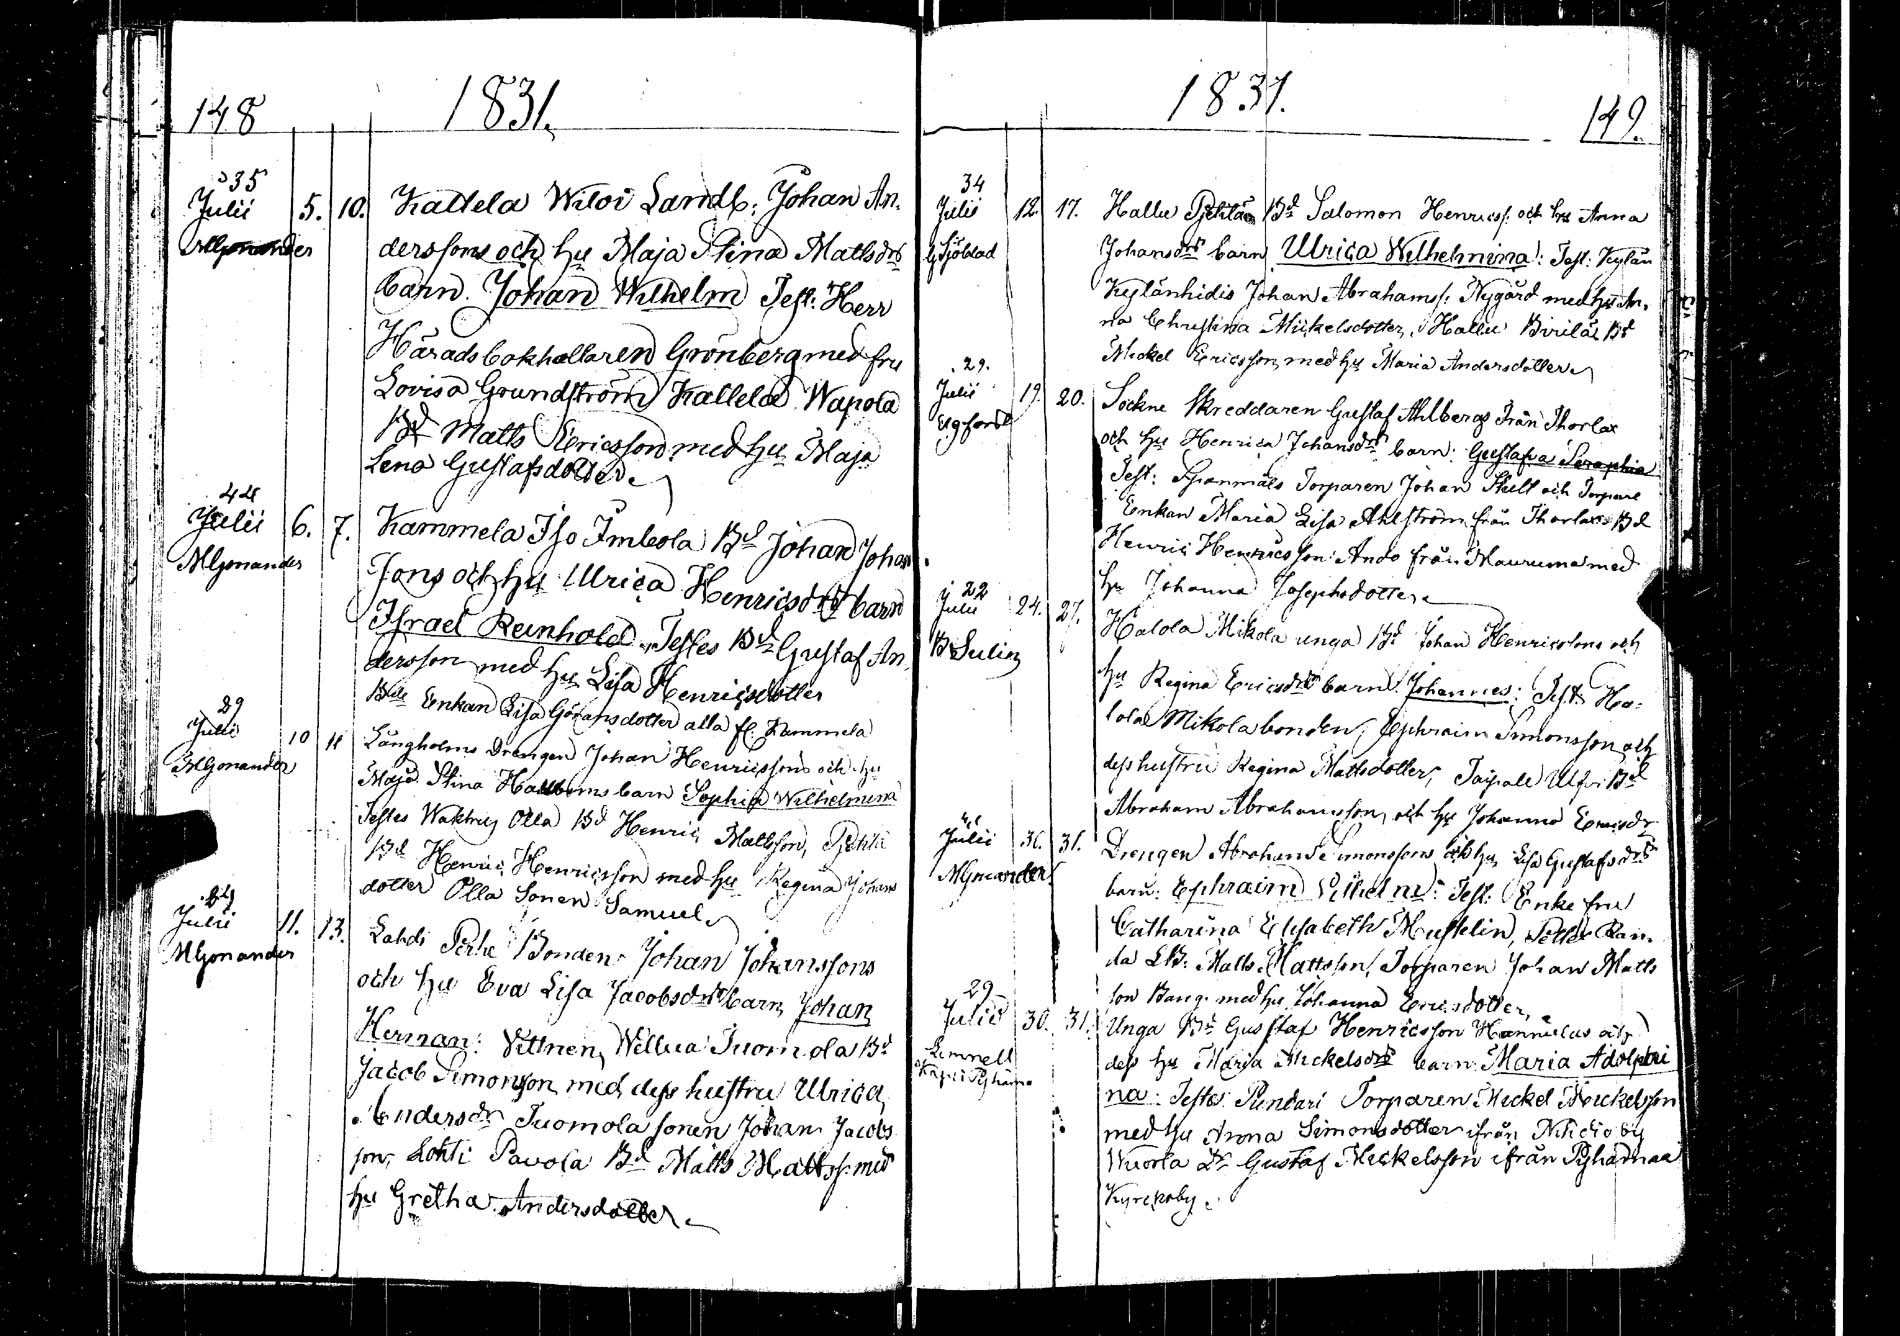 148
1831.
35
Julii 5. 10. Kallela Wiloi Landb: Johan An-
MGonander derssons och hu Maja Stina Mattsdrs
barn. Johan Wilhelm Test: Herr
Häradsbokhållaren Grönberg med fru
Lovisa Grundström Kallela Wapola
Bd Matts Ericsson med hu Maja
Lena Gustafsdotter.
44
Julii 6. 7. Kammela Iso Imbola Bd Johan Johans
MGonander sons och hu Ulrica Henricsdrs barn
Israel Reinhold. Testes Bd Gustaf An-
dersson med hu Lisa Henricsdotter
Bde Enkan Lisa Göransdotter alla fr. Kammela
29
Julii 10 11 Långholms Drengen Johan Henricssons och hu
MGonander Maja Stina barn Sophia Wilhelmina
Testes Olla Bd Henric Mattsson, Pehtla
Bd Henric Henricsson med hu Regina Johans
dotter Olla Sonen Samuel.
Julii 11. 13. Lahdi Perhe Bonden Johan Johanssons
MGonander
och hu Eva Lisa Jacobsdrs barn Johan
Herman: Vittnen, Wellua Tuomola Bd
Jacob Simonson med dess hustru Ulrica
Andersdr Tuomola sonen Johan Jacobs
son, Lahti Pavola Bd Matts Mattss: med
hu Gretha Andersdotter.
1831.
149.
34
Julii 12. 17. Hallu Bd Salomon Henricss: och hu Anna
Johansdrs barn Ulrica Wilhelmina: Test: Kylän
Kylänhidis Johan Abrahamss: Nygård med hu An-
na Christina Mickelsdotter, Hallu Bd
Mickel Ericsson med hu Maria Andersdotter.
29.
Julii 19. 20. Sockne Skreddaren Gustaf Ahlbergs Från Thorlax
och hu Henrica Johansdrs barn: Gustafva Seraphia
Test: Spanmäls Torparen Johan Skill och Torpare
Enkan Maria Lisa Ahlström från Thorlax Bd
Henric Henricsson Ando från Mauruma med
hu Johanna Josephsdotter.
22
Julii 24. 27. Halola Mikola unga Bd Johan Henricssons och
hu Regina Ericsdrs barn Johannes: Test: Ha-
lola Mikola bonden, Ephraim Simonsson och
dess hustru Regina Mattsdotter, Taipale Bd
Abraham Abrahamsson och hu Johanna Ericsdr
Julii 30. 31. Drengen Abraham Simonssons och hu Lisa Gustafsdrs
MGonander
barn: Ephraim Vilhelm: Test: Enke fru
Catharina Elisabeth Petter
Matts Mattsson, Torparen Johan Matts
son Bang med hu Johanna Ericsdotter.
29
Julii 30. 31. Unga Bd Gustaf Henricsson Hannulas och
Limnell
dess hu Maria Mickelsdrs barn: Maria Adolphi
na: Testes: Pundari Torparen Mickel Mickelsson
med hu Anna Simonsdotter ifrån
Wuorla Dr Gustaf Mickelsson ifrån Pyhämaa
Kyrckoby.